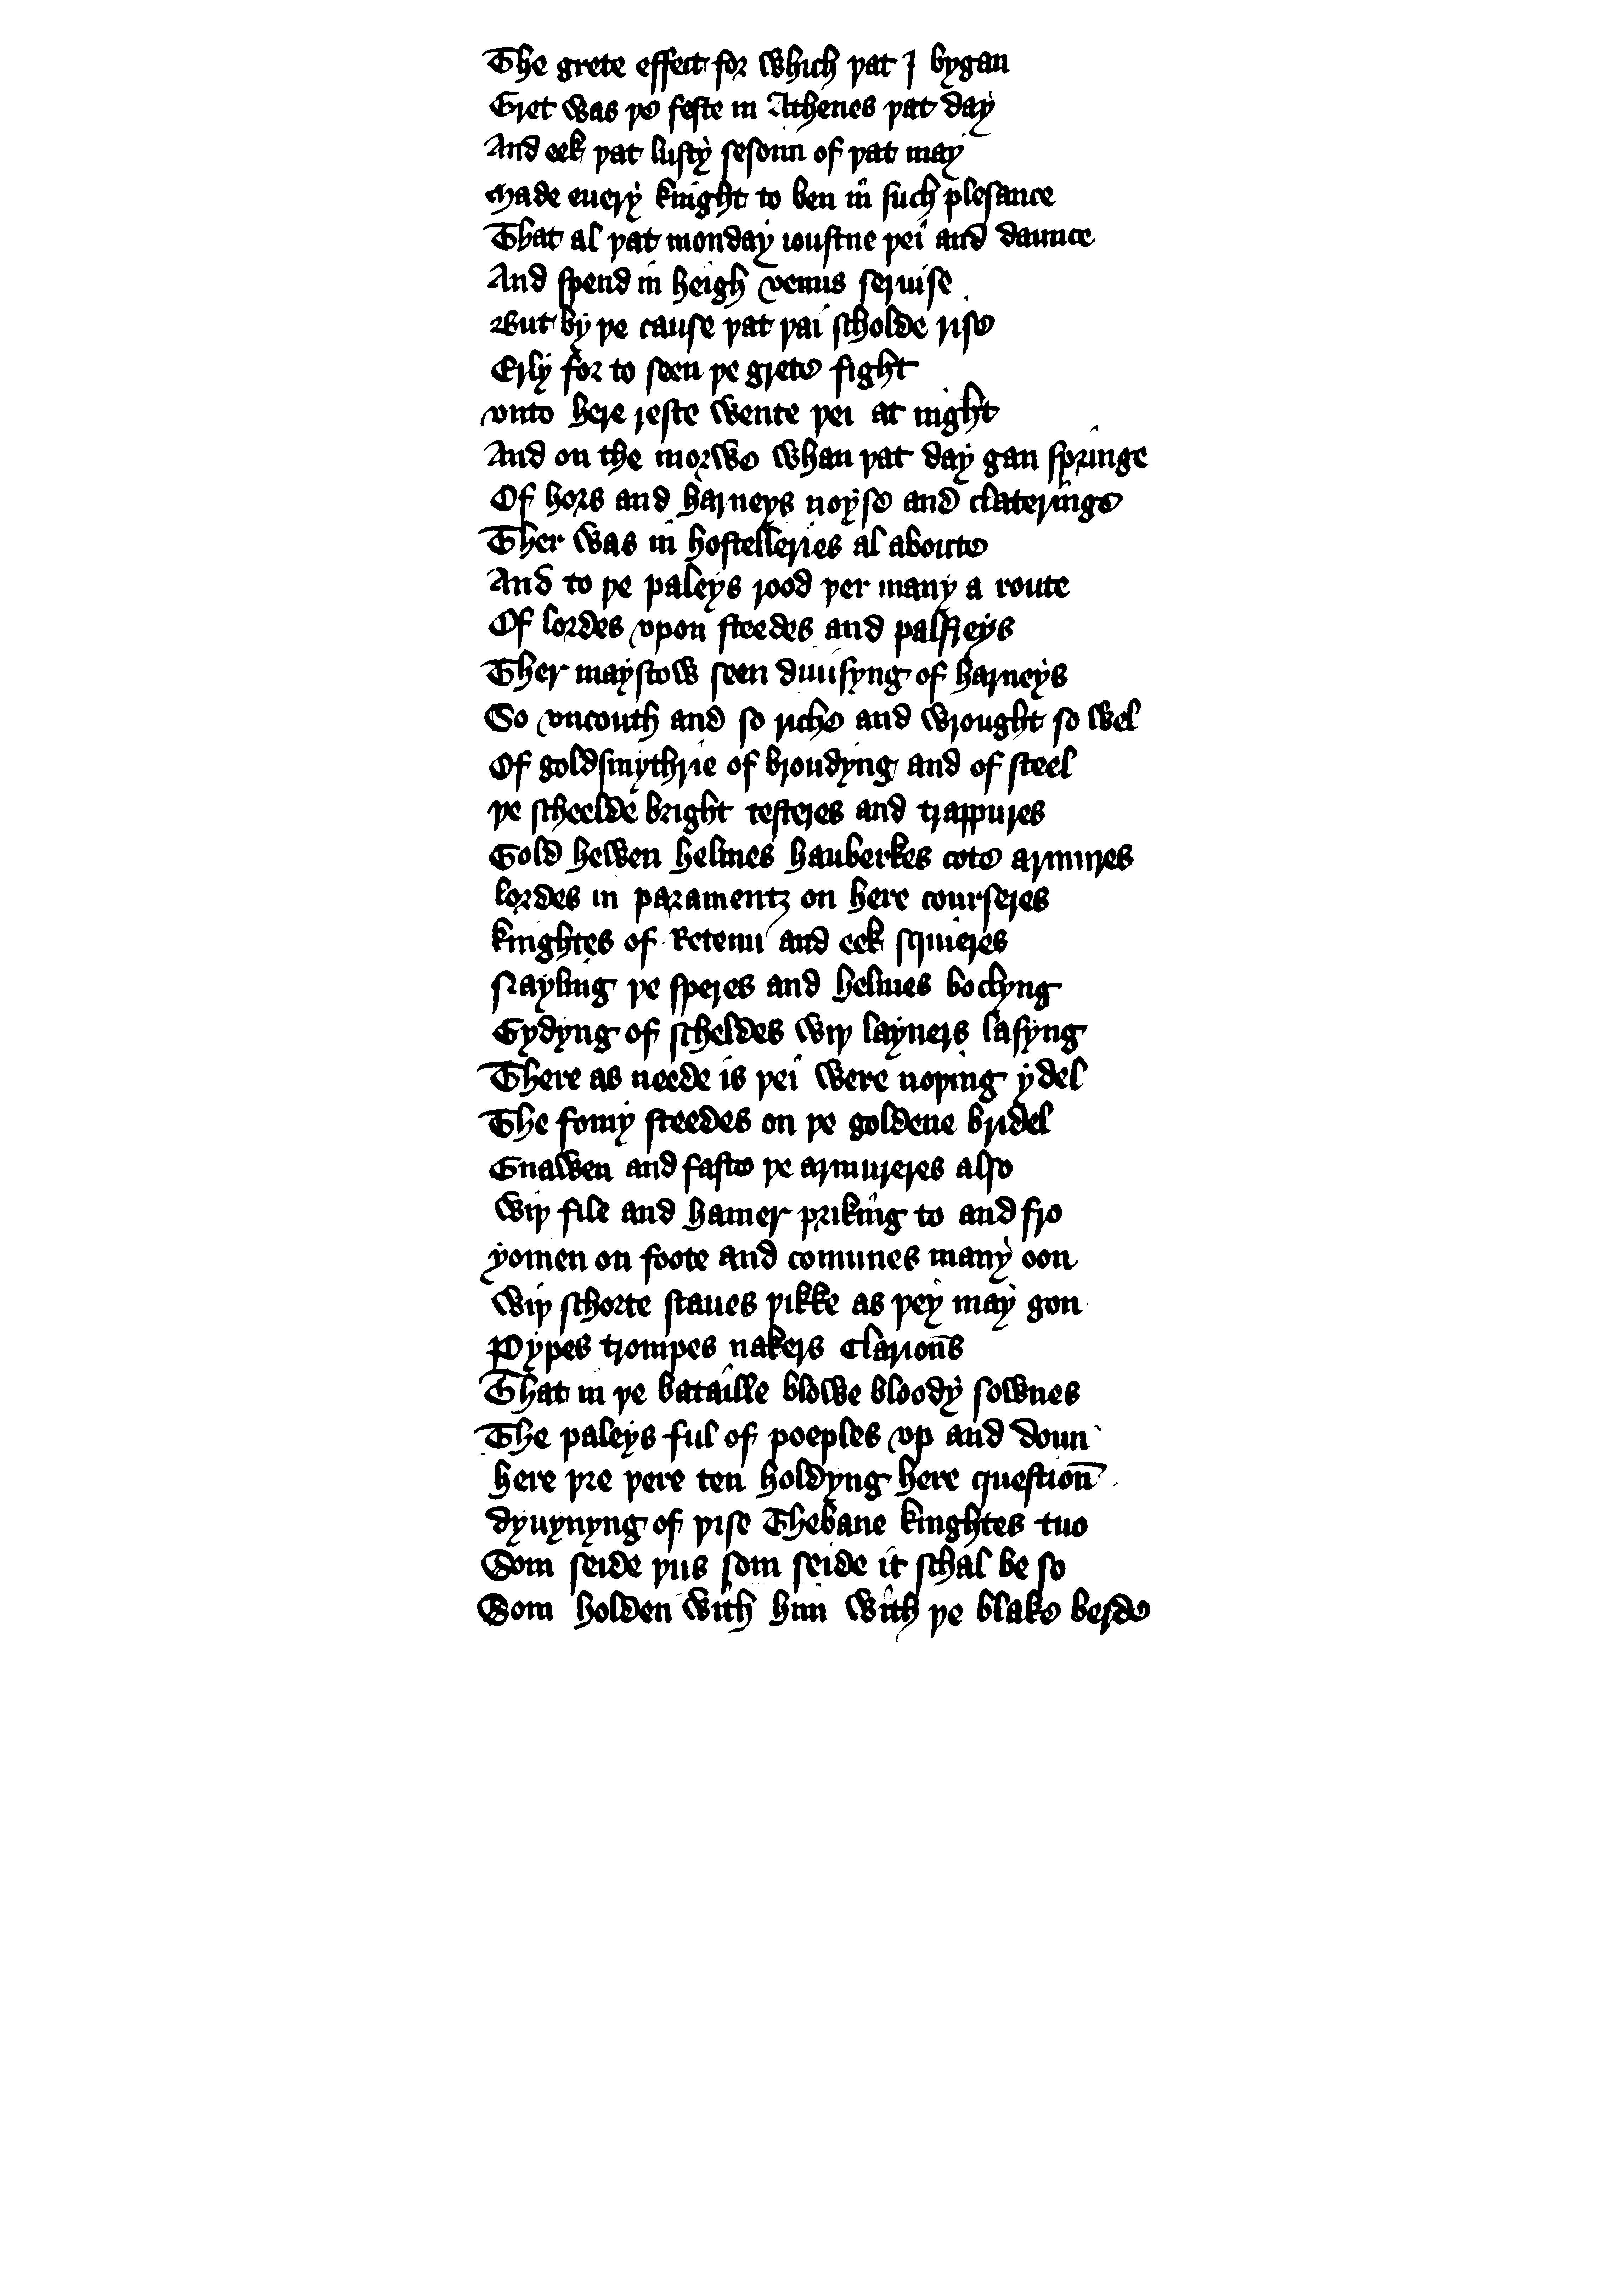 The grete effect for which þat I bygan
Gret was þe feste in Athenes þat day
And eek þat lusty sesoun of þat may
Made euery knight to ben in such plesance
That al þat monday iustne þei and daunce
And spend in heigh venus seruise
But by þe cause þat þai scholde rise
Erly for to seen þe grete fight
vnto here reste wente þei at night
And on the morwe whan þat day gan springe
Of hors and harneys noyse and clateringe
Ther was in hostelleries al aboute
And to þe paleys rood þer many a route
Of lordes vpon steedes and palfreys
Ther maystow seen diuisyng of harneys
So vncouth and so riche and wrought so wel
Of goldsmythrie of broudyng and of steel
þe scheelde bright testeres and trappures
Gold hewen helmes hauberkes cote armures
lordes in paramentz on here courseres
knightes of Retenu and eek squieres
Nayling þe speres and helmes boclyng
Gydyng of scheldes wiþ layners lasyng
There as neede is þei were noþing ydel
The fomy steedes on þe goldene bridel
Gnawen and faste þe armureres also
Wiþ file and hamer priking to and fro
yomen on foote and comunes many oon
Wiþ schorte staues þikke as þey may gon
Pypes trompes nakers Clariouns
That in þe bataille blowe bloody sownes
The paleys ful of poeples vp and doun
here þre þere ten holdyng here questioun
dyuynyng of þise Thebane knightes tuo
Som seide þus som seide it schal be so
Som holden with him with þe blake berde